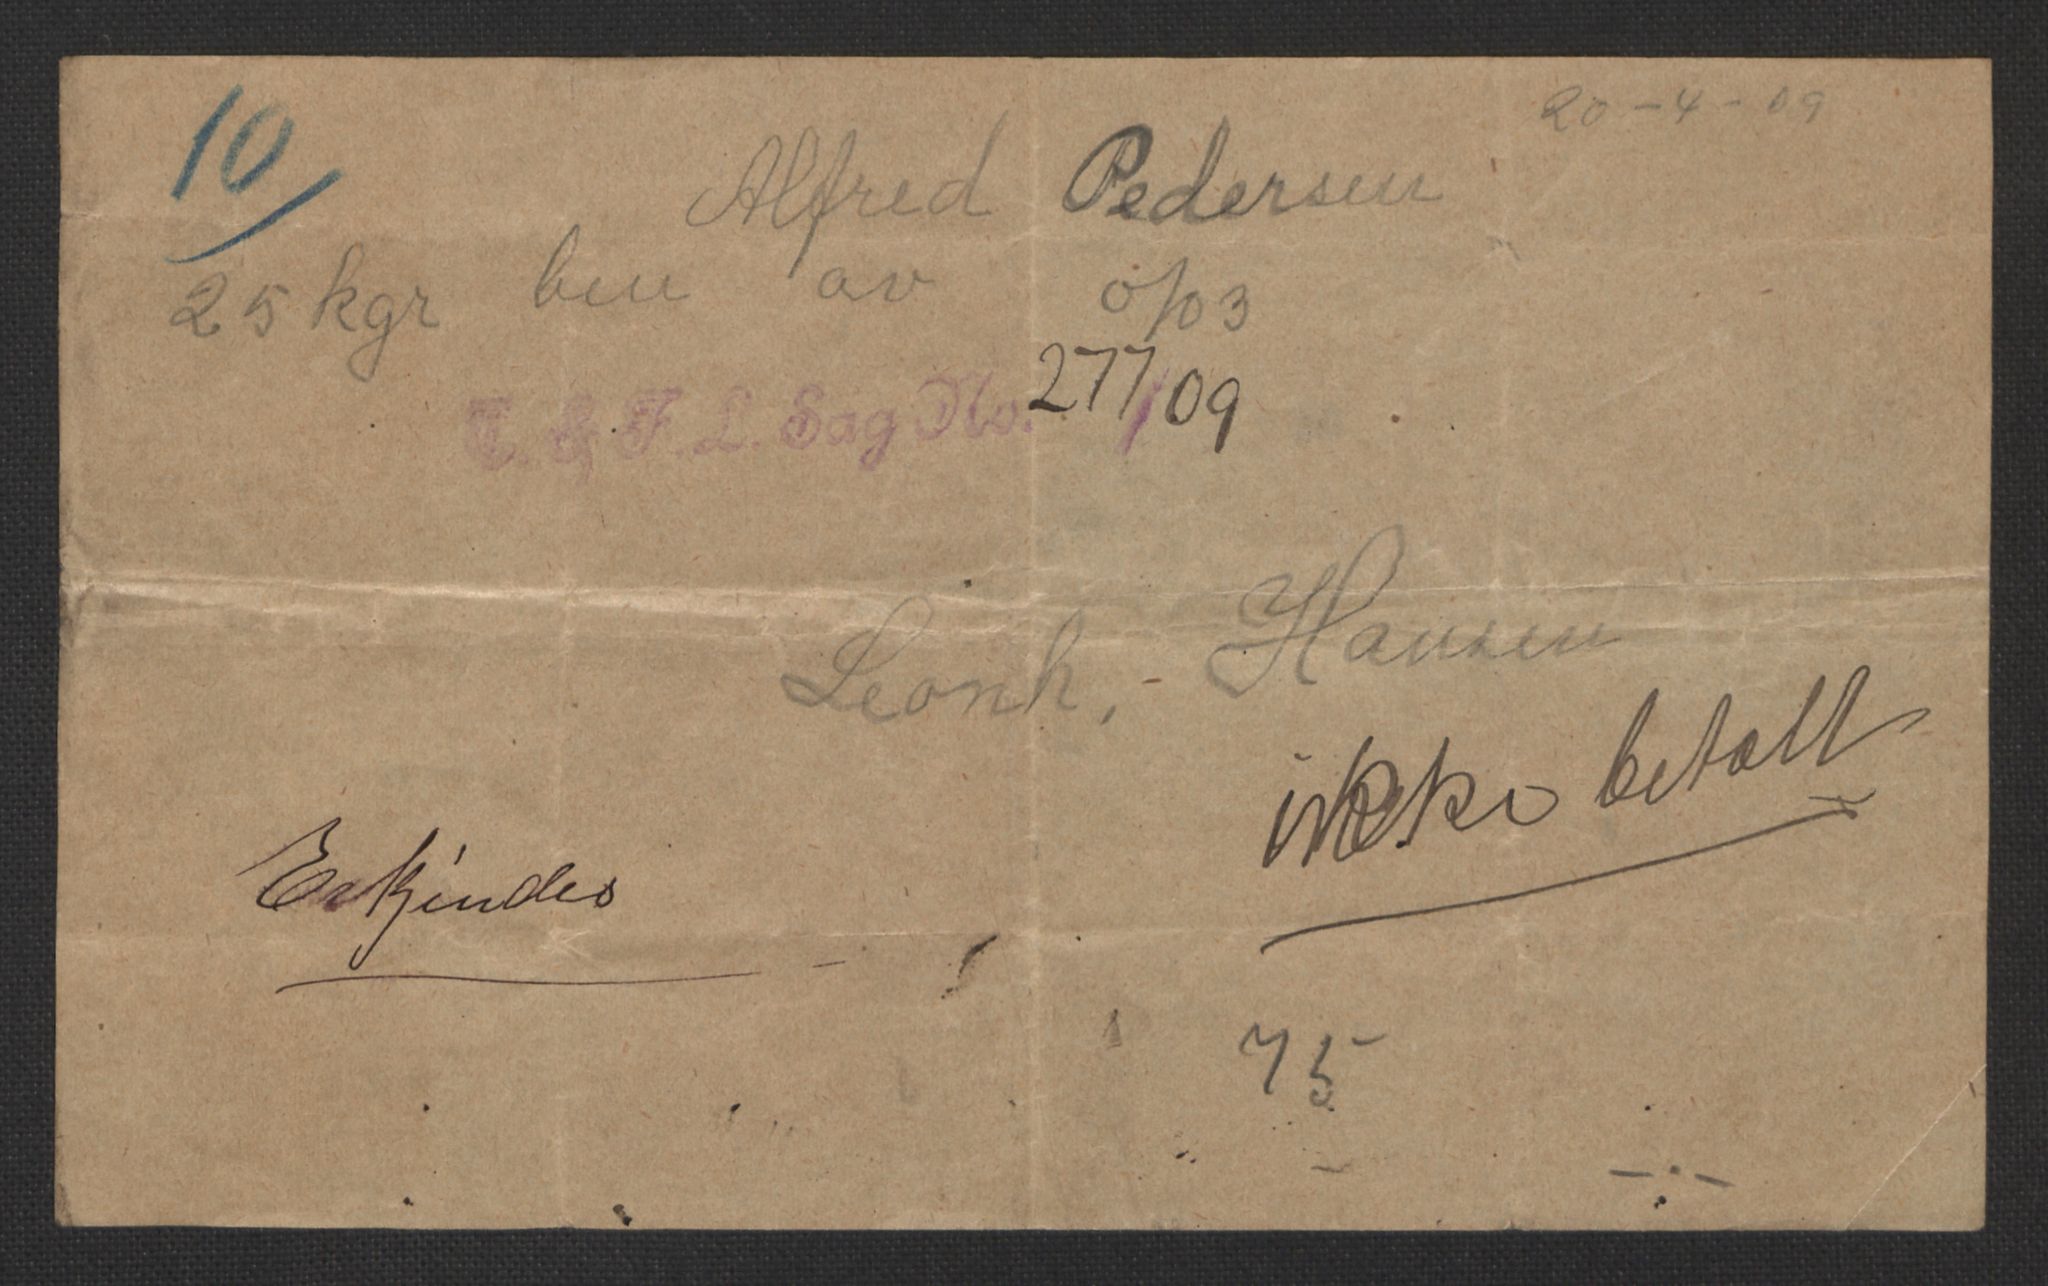 10/
20-4-09
Alfred Pedersen
25 kgr ben av 0/03
T. & F. L. Sag No. 277/09
Leonh. Hansen
ikke betalt
Erkjendes
75